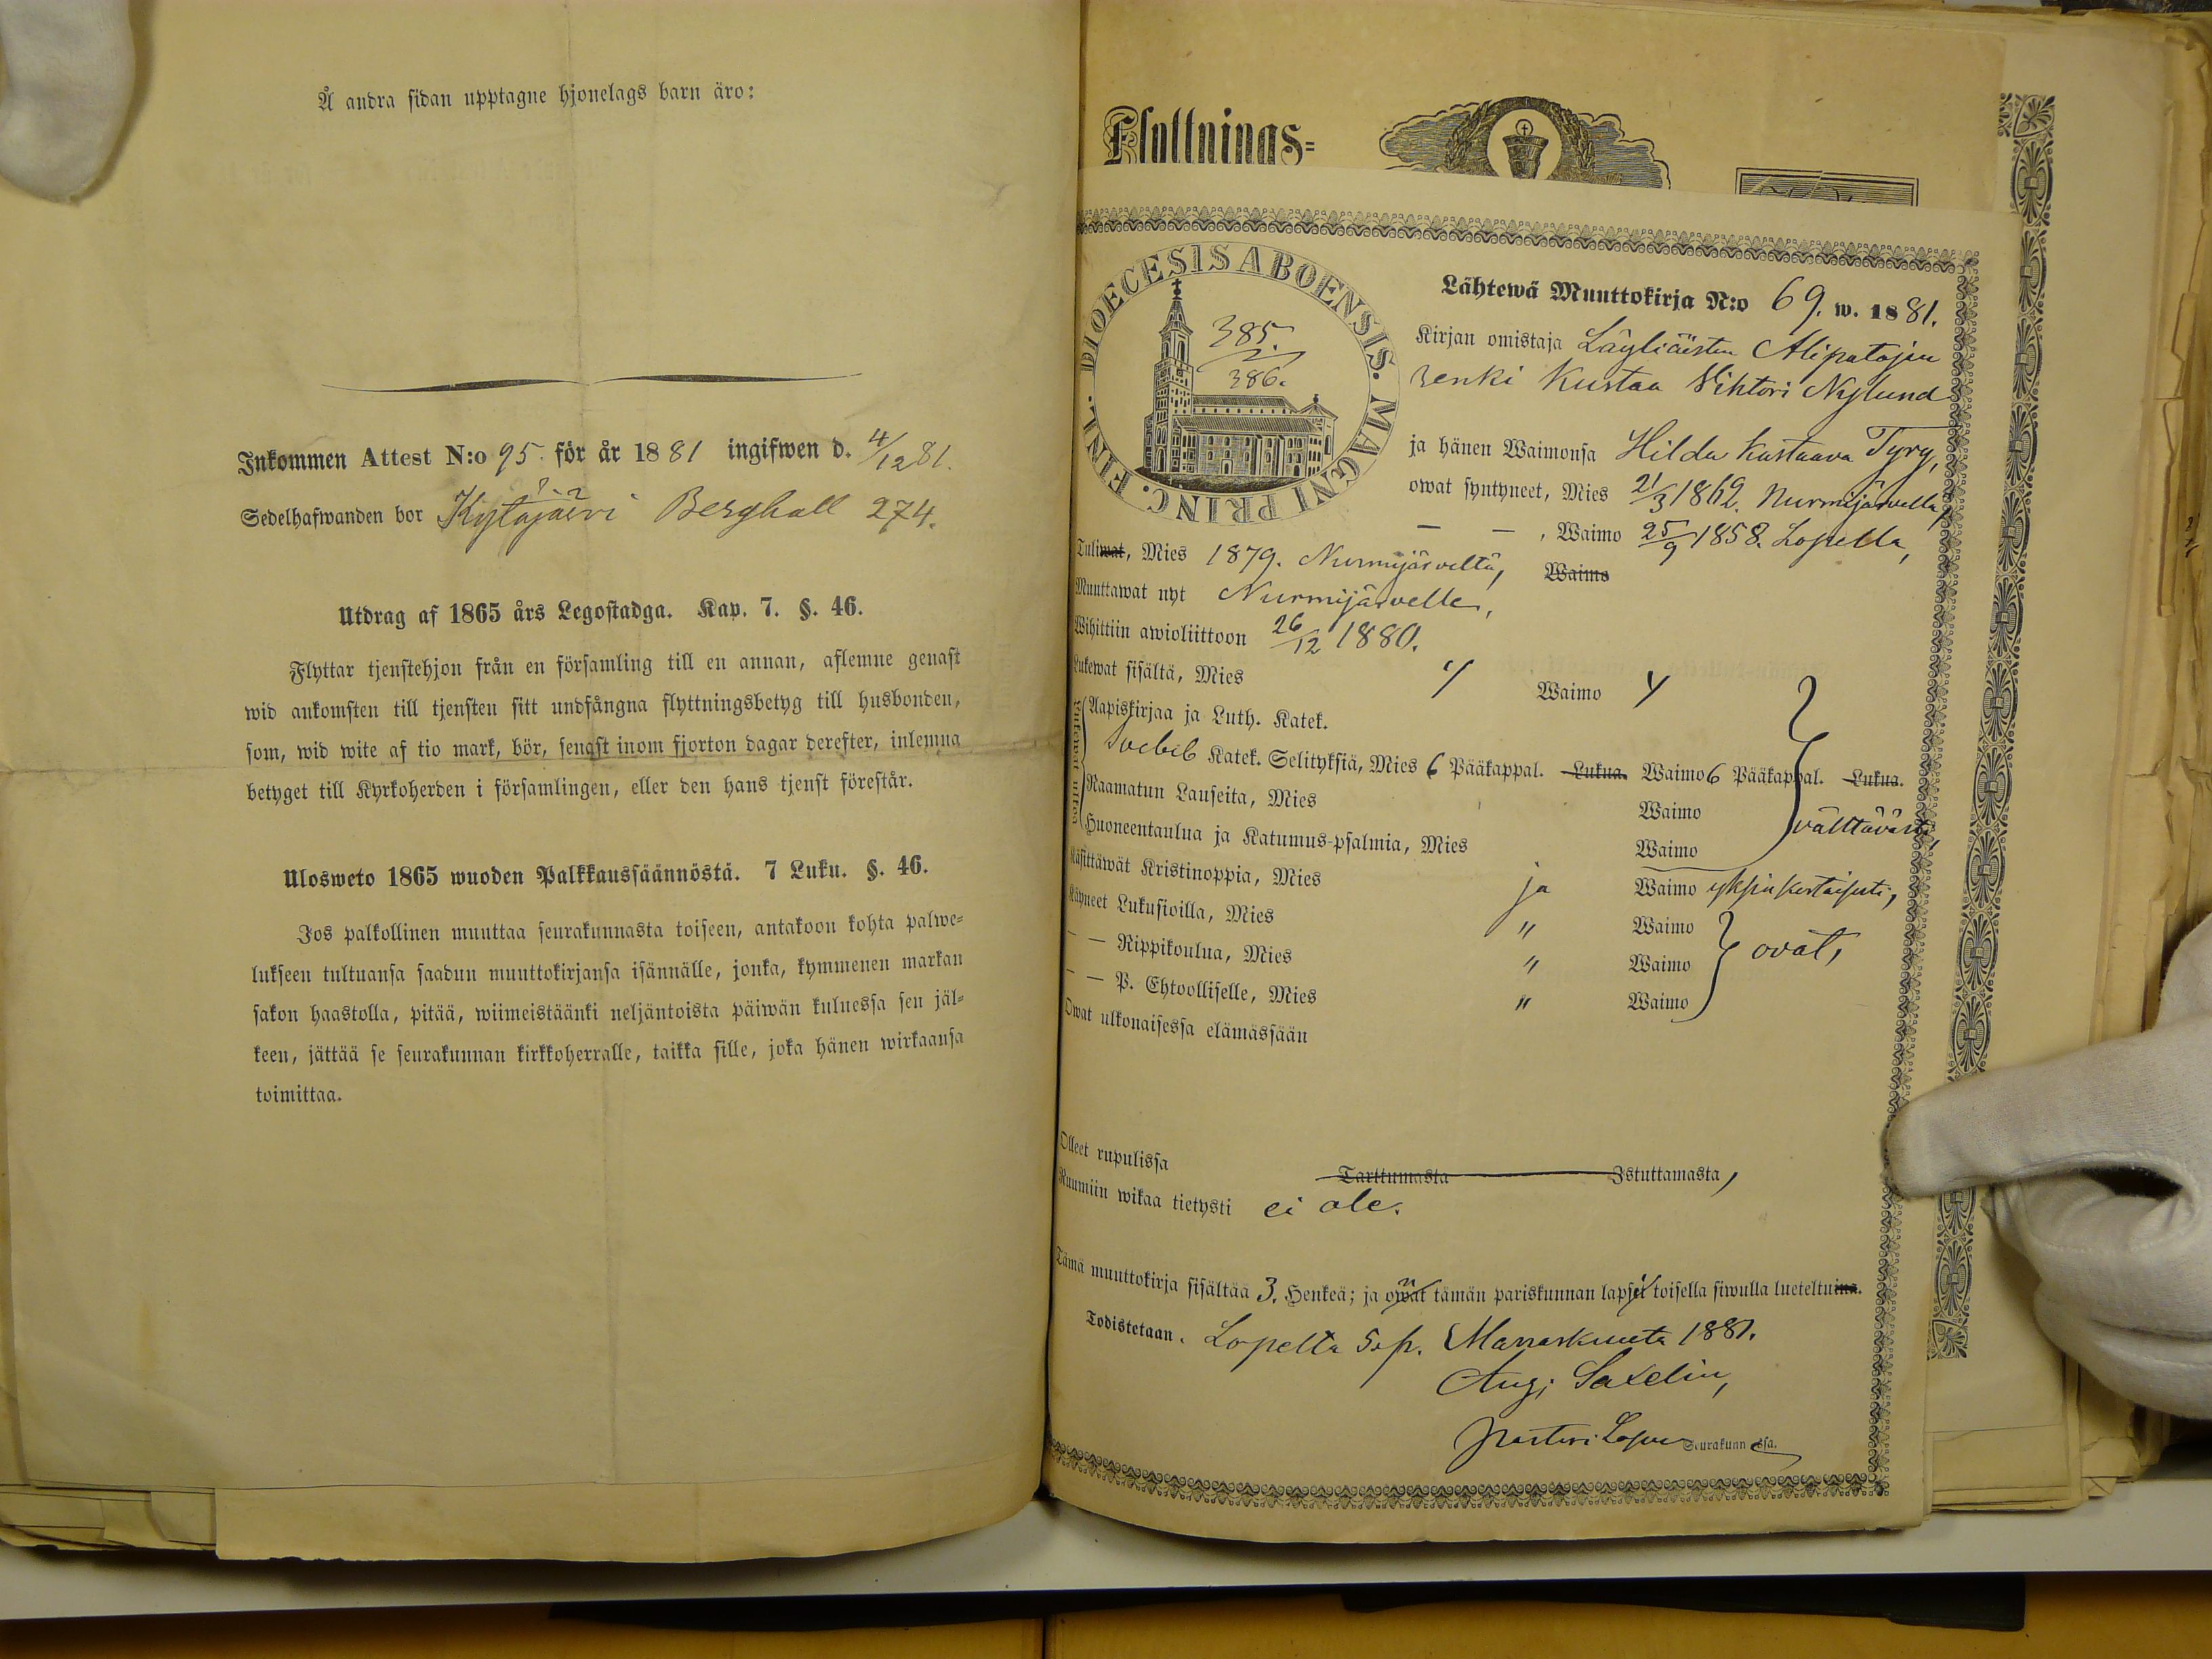 Å andra sidan upptagne hjonelags barn äro:
Inkommen Attest N:o 95. för år 1881 ingifwen d. 4/12 81.
Sedelhafwanden bor Kytäjärvi Berghall 274.
Utdrag af 1865 års Legostadga. Kap. 7. §. 46.
Flyttar tjenstehjon från en församling till en annan, aflemne genast
wid ankomsten till tjensten sitt undfångna flyttningsbetyg till husbonden,
som, wid wite af tio mark, bör, senast inom fjorton dagar derefter, inlemna
betyget till Kyrkoherden i församlingen, eller den hans tjenst förestår.
Ulosweto 1865 wuoden Palkkaussäännöstä. 7 Luku. §. 46.
Jos palkollinen muuttaa seurakunnasta toiseen, antakoon kohta palwe=
lukseen tultuansa saadun muuttokirjansa isännälle, jonka, kymmenen markan
sakon haastolla, pitää, wiimeistäänki neljäntoista päiwän kuluessa sen jäl=
keen, jättää se seurakunnan kirkkoherralle, taikka sille, joka hänen wirkaansa
toimittaa.
Flyttnings=
DIOECESIS ABOENSIS. MAGNI PRINC. FINL.
385.
2
386.
Lähtewä Muuttokirja N:o 69. w. 1881.
Kirjan omistaja Läyliäisten Alipatojan
renki Kustaa Vihtori Nylund
ja hänen Waimonsa Hilda Kustaava Tyry,
owat syntyneet, Mies 21/3 1862. Nurmijärvellä,
— — , Waimo 25/9 1858. Lopella,
Tuliwat, Mies 1879. Nurmijärveltä, Waimo
Muuttawat nyt Nurmijärvelle,
Wihittiin awioliittoon 26/12 1880.
Lukewat sisältä, Mies y Waimo y
Aapiskirjaa ja Luth. Katek.
Svebil. Katek. Selityksiä, Mies 6 Pääkappal. Lukua. Waimo 6 Pääkappal. Lukua.
Raamatun Lauseita, Mies Waimo
Huoneentaulua ja Katumus-psalmia, Mies Waimo
välttäväst,
Käsittäwät Kristinoppia, Mies ja Waimo yksinkertaisesti,
Käyneet Lukusioilla, Mies " Waimo
— — Rippikoulua, Mies " Waimo ovat,
— — P. Ehtoolliselle, Mies " Waimo
Owat ulkonaisessa elämässään
Olleet rupulissa Tarttumasta Istuttamasta,
Ruumiin wikaa tietysti ei ole.
Tämä muuttokirja sisältää 3. Henkeä; ja owat tämän pariskunnan lapset toisella siwulla lueteltuina.
Todistetaan. Lopella 5 p. Marraskuuta 1881.
Aug; Saxelin,
pastori Lopen Seurakunnassa.